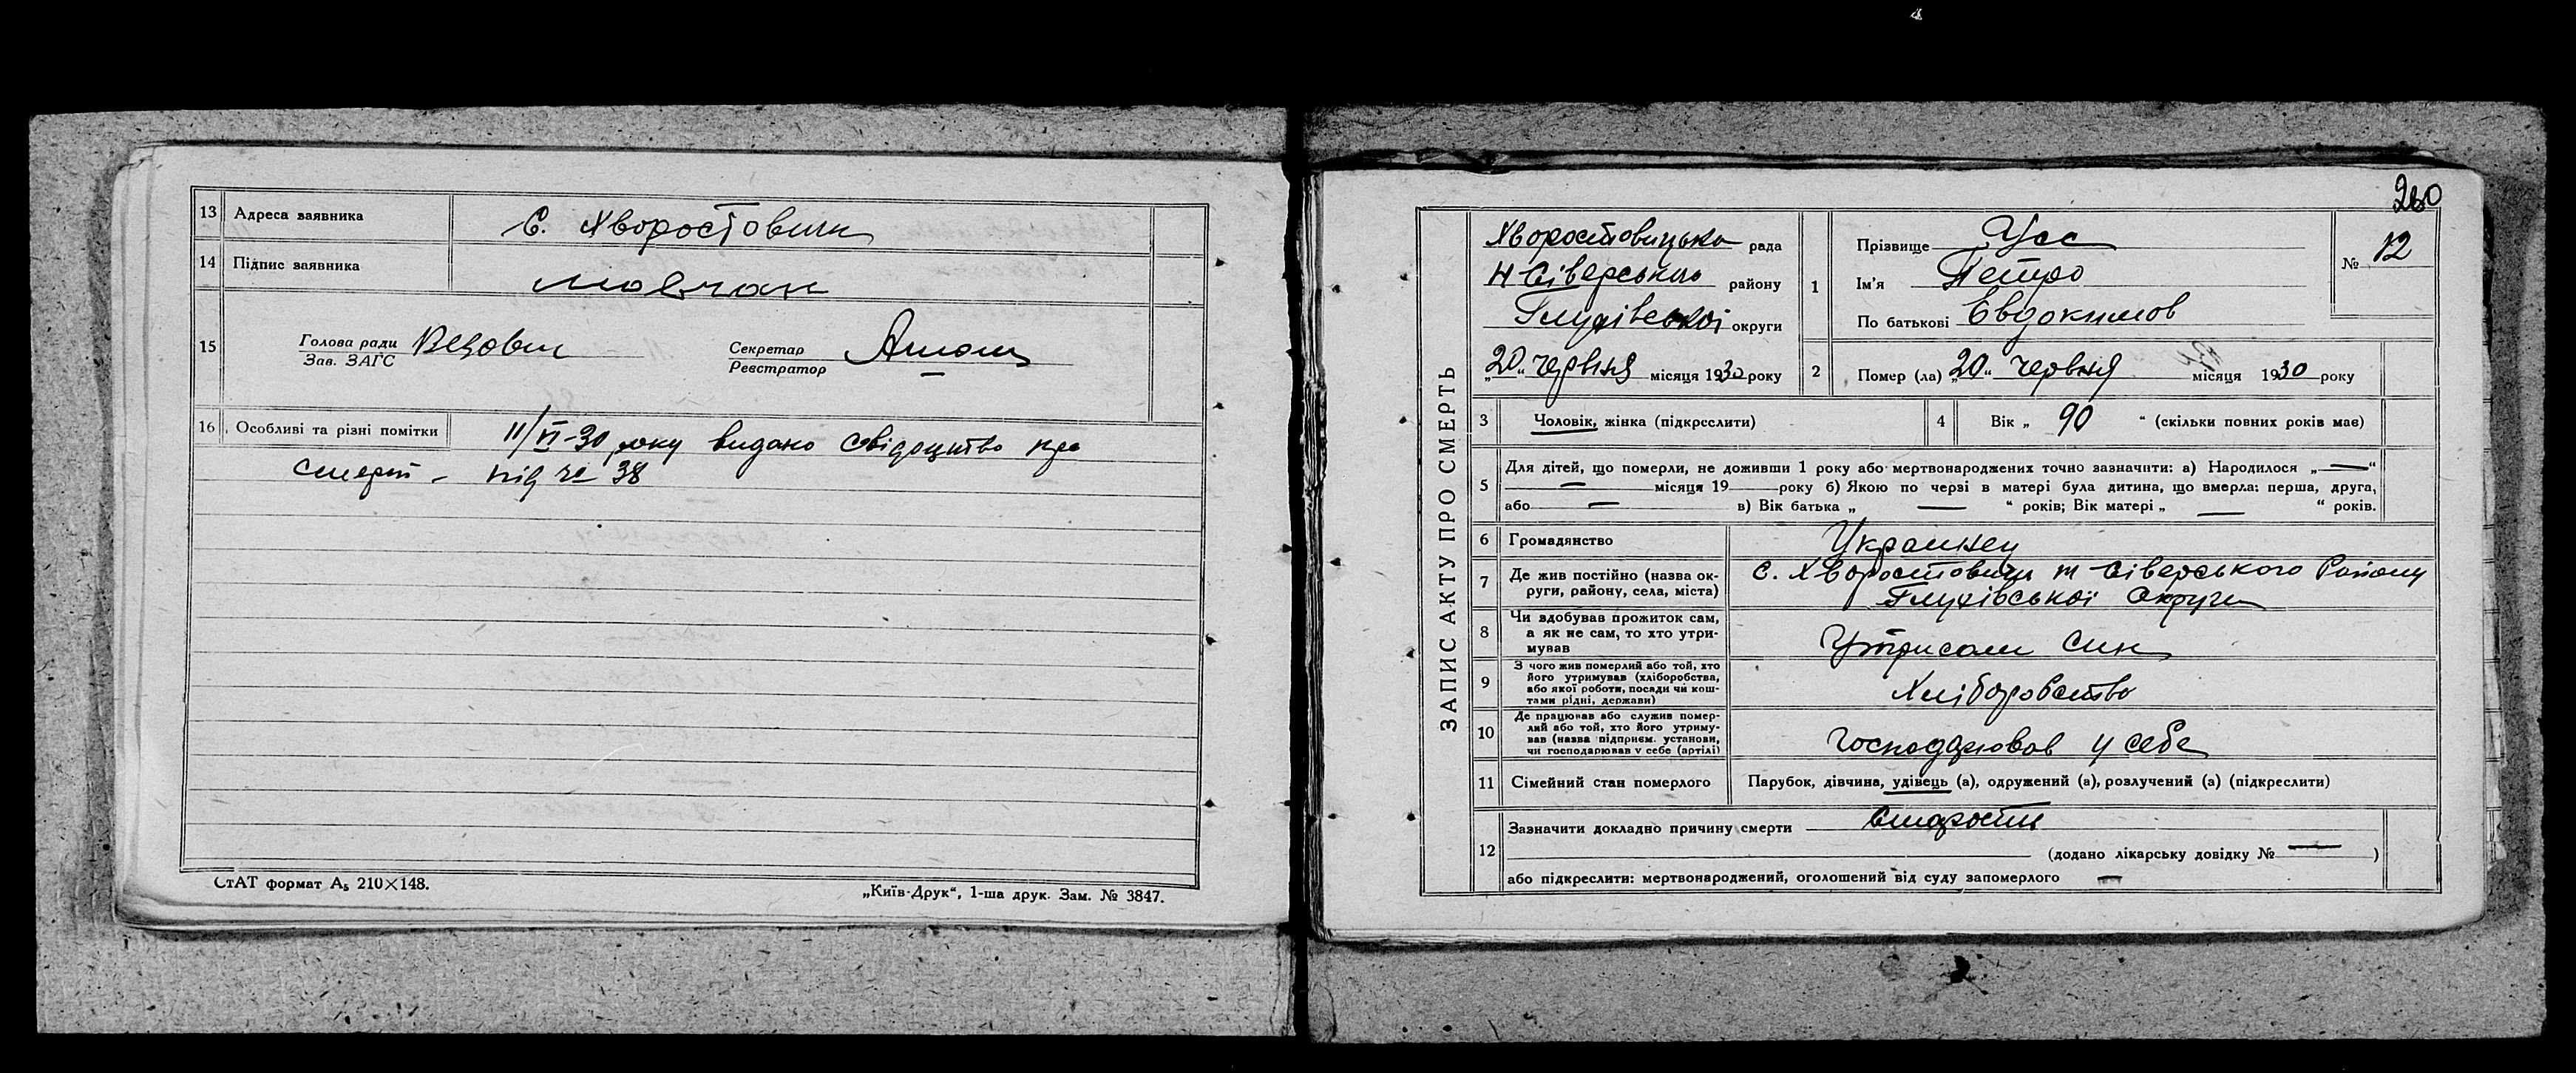 13 Адреса заявника С. Хворостовичи
14 Підпис заявника Мовчан
15 Голова ради
Зав. ЗАГС
Секретар
Реєстратор
16 Особливі та різні помітки 11/VI-30 року видано свідоцтво про
смерт - під № 38
СтАТ формат А₅ 210×148. „Київ-Друк“, 1-ша друк. Зам. № 3847.
260
ЗАПИС АКТУ ПРО СМЕРТЬ
Хворостовицька рада
Н Сіверського району
Глухівської округи
„20“ червня місяця 1930 року
1 Прізвище Усс
Ім'я Петро
По батькові Евдокимов
№ 12
2 Помер (ла) „20“ червня місяця 1930 року
3 Чоловік, жінка (підкреслити)
4 Вік „ 90 “ (скільки повних років має)
5 Для дітей, що померли, не доживши 1 року або мертвонароджених точно зазначити: а) Народилося „—“
— місяця 19—року б) Якою по черзі в матері була дитина, що вмерла: перша, друга,
або — в) Вік батька „ — “ років; Вік матері „ — “ років.
6 Громадянство Украинец
7 Де жив постійно (назва ок-
руги, району, села, міста)
с. Хворостовичи Н Сіверського Району
Глухівської Округи
8 Чи здобував прожиток сам,
а як не сам, то хто утри-
мував
син
9 З чого жив померлий або той, хто
його утримував (хліборобства,
або якої роботи, посади чи кош-
тами рідні, держави)
Хліборобство
10 Де працював або служив помер-
лий або той, хто його утриму-
вав (назва підприєм. установи,
чи господарював у себе (артілі)
Господарював у себе
11 Сімейний стан померлого Парубок, дівчина, удівець (а), одружений (а), розлучений (а) (підкреслити)
12 Зазначити докладно причину смерти старости
(додано лікарську довідку № — )
або підкреслити: мертвонароджений, оголошений від суду запомерлого —